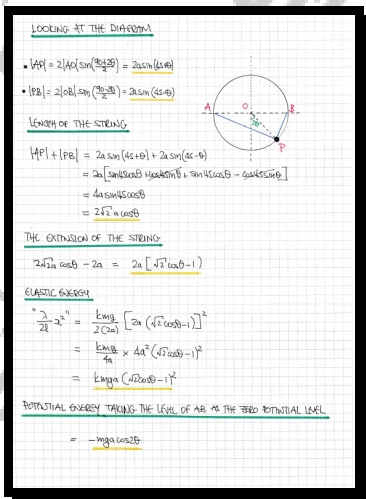 LOOKING AT THE DIAGRAM
• |AP| = 2|AO| sin((90+2θ)/2) = 2a sin(45+θ)
• |PB| = 2|OB| sin((90-2θ)/2) = 2a sin(45-θ)
A O B
2θ
P
LENGTH OF THE STRING
|AP| + |PB| = 2a sin(45+θ) + 2a sin(45-θ)
= 2a[sin45cosθ + cos45sinθ + sin45cosθ - cos45sinθ]
= 4a sin45cosθ
= 2√2 a cosθ
THE EXTENSION OF THE STRING
2√2 a cosθ - 2a = 2a[√2 cosθ - 1]
ELASTIC ENERGY
"λ/2l x²" = kmg/2(2a) [2a(√2 cosθ - 1)]²
= kmg/4a × 4a²(√2 cosθ - 1)²
= kmga(√2 cosθ - 1)²
POTENTIAL ENERGY TAKING THE LEVEL OF AB AS THE ZERO POTENTIAL LEVEL
= -mga cos2θ